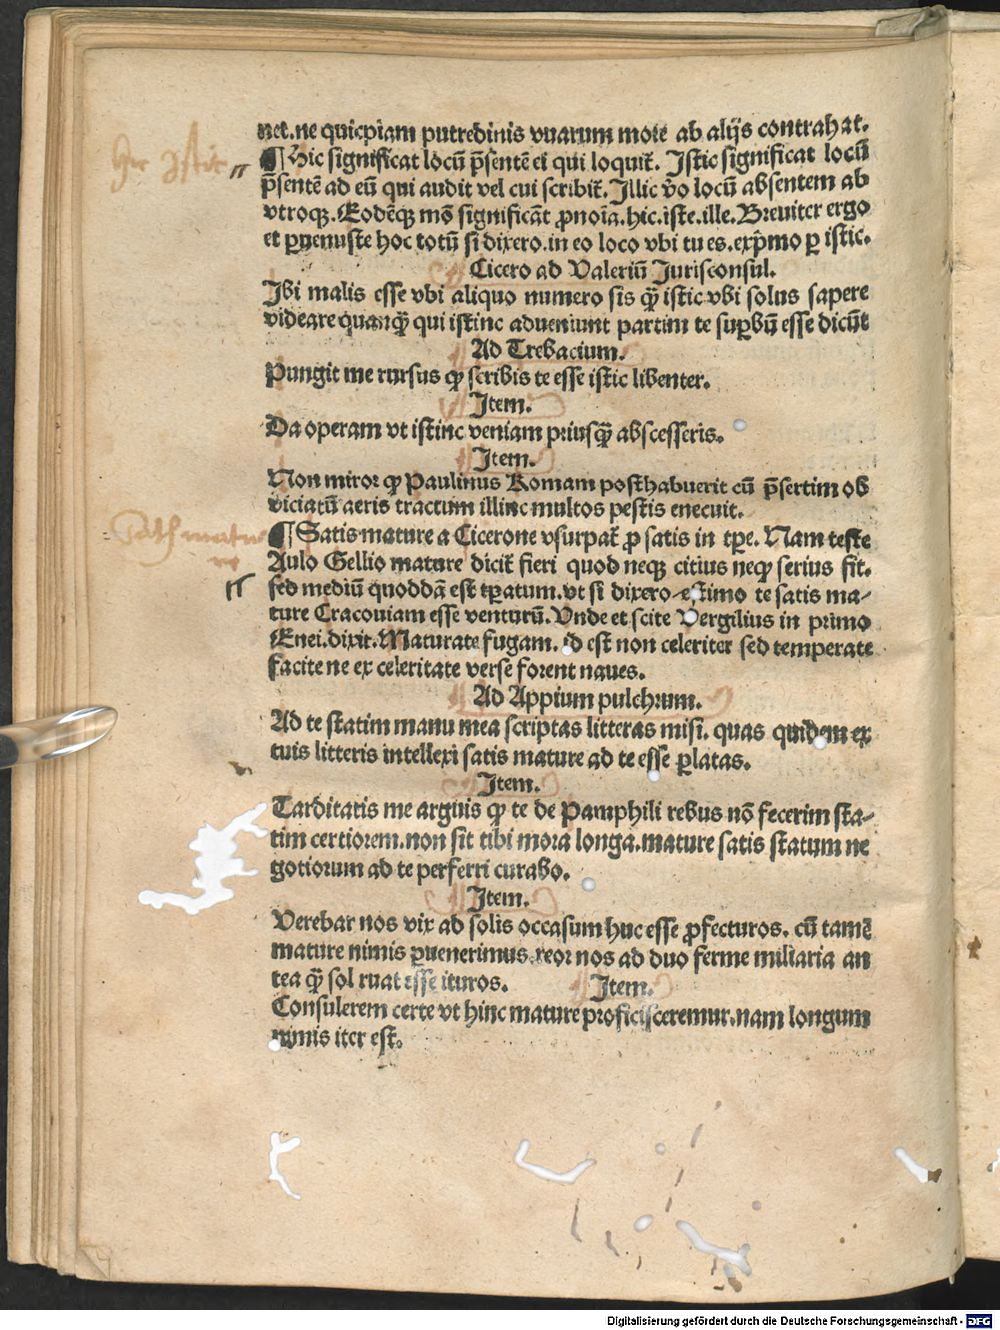 net. ne quicpiam putredinis vuarum more ab alijs contrahat.
Hic Istic
¶ Hic significat locū p̄sentē ei qui loquit̄. Istic significat locū
p̄sentē ad eū qui audit vel cui scribit̄. Illic ṽo locū absentem ab
vtroqꝫ. Eodēqꝫ mō significāt ꝓnoīa. hic. iste. ille. Breuiter ergo
et ꝑuenuste hoc totū si dixero. in eo loco vbi tu es. exp̄mo ꝑ istic.
Cicero ad Valeriū Jurisconsul.
Ibi malis esse vbi aliquo numero sis qꝫ̄ istic vbi solus sapere
videare quanqꝫ̄ qui istinc adueniunt partim te suꝑbū esse dicūt
Ad Trebacium.
Pungit me rursus ꝙ scribis te esse istic libenter.
Item.
Da operam vt istinc veniam priusqꝫ̄ abscesseris.
Item.
Non miror ꝙ Paulinus Romam posthabuerit cū p̄sertim ob
viciatū aeris tractum illinc multos pestis enecuit.
¶ Satis mature a Cicerone vsurpat̄ ꝓ satis in tp̄e. Nam teste
Aulo Gellio mature dicit̄ fieri quod neqꝫ citius neqꝫ serius fit.
sed mediū quoddā est tꝑatum. vt si dixero estimo te satis ma-
ture Cracouiam esse venturū. Vnde et scite Vergilius in primo
Enei. dixit. Maturate fugam. id est non celeriter sed temperate
facite ne ex celeritate verse forent naues.
Ad Appium pulchrum.
Ad te statim manu mea scriptas litteras misi. quas quidem ex
tuis litteris intellexi satis mature ad te esse ꝑlatas.
Item.
Tarditatis me arguis ꝙ te de Pamphili rebus nō fecerim sta-
tim certiorem. non sit tibi mora longa. mature satis statum ne
gotiorum ad te perferri curabo.
Item.
Verebar nos vix ad solis occasum huc esse ꝓfecturos. cū tamē
mature nimis ꝑuenerimus. reor nos ad duo ferme miliaria an
tea qꝫ̄ sol ruat esse ituros. Item.
Consulerem certe vt hinc mature proficisceremur. nam longum
nimis iter est.
Digitalisierung gefördert durch die Deutsche Forschungsgemeinschaft - DFG